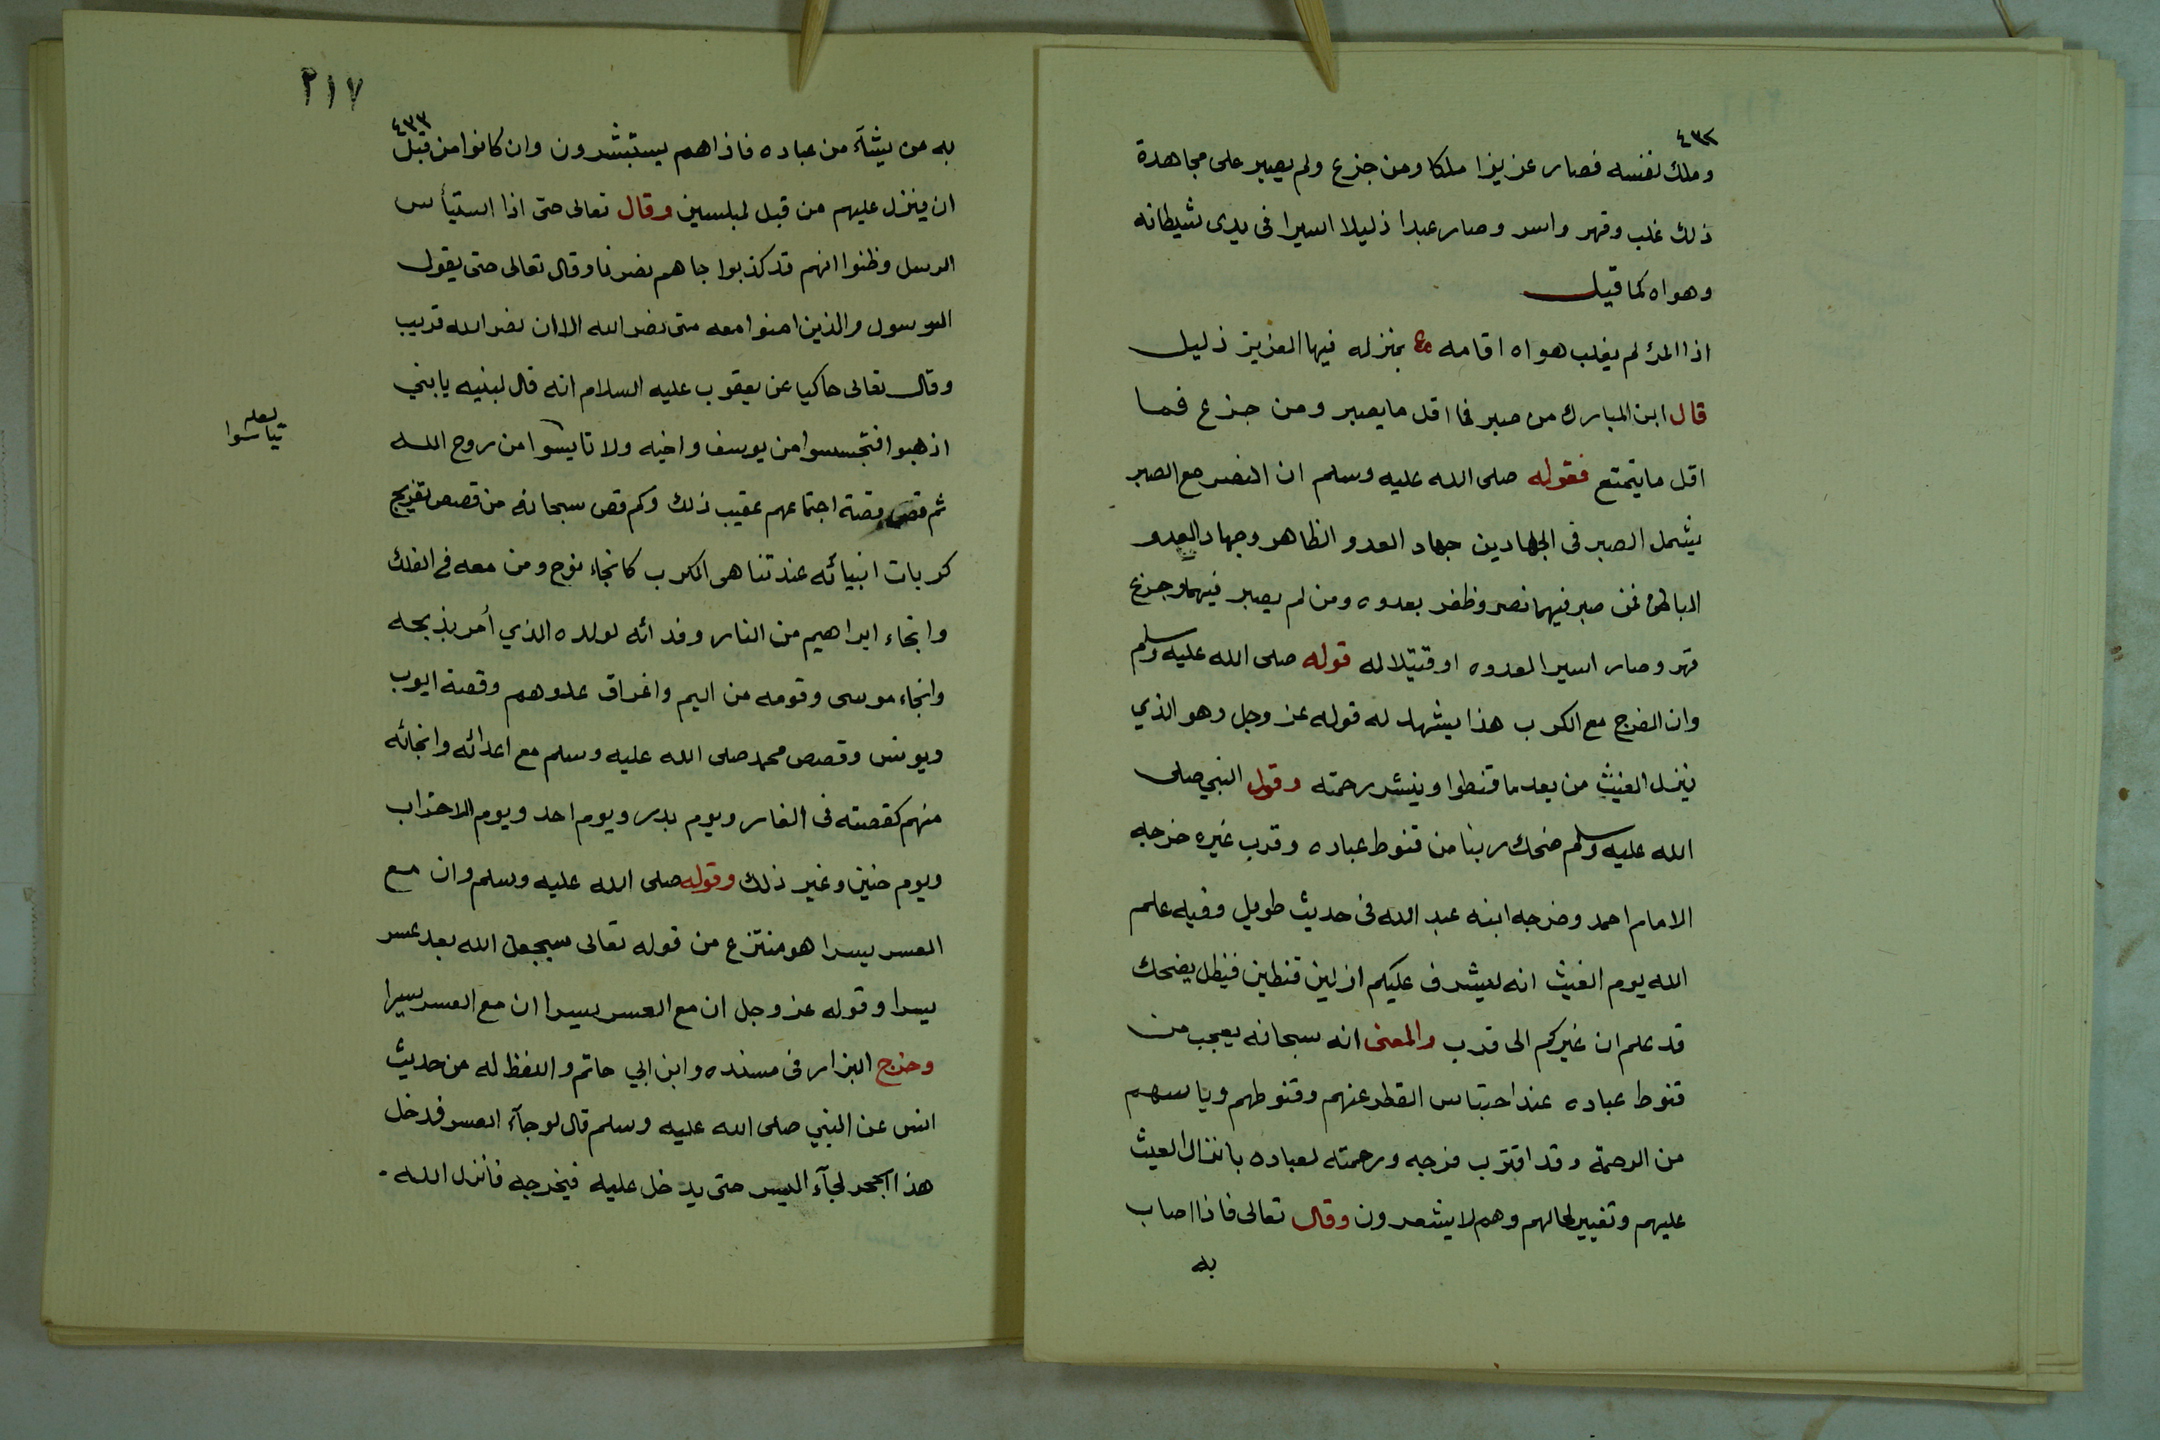 ٤٣٢
وملك نفسه فصار عزيزا ملكا ومن جزع ولم يصبر على مجاهدة
ذلك غلب وقهر واسر وصار عبدا ذليلا اسيرا فى يدى شيطانه
وهواه كما قيل
اذا المرؤ لم يغلب هواه اقامه بمنزلة فيها العزيز ذليل
قال ابن المبارك من صبر فما اقل ما يصبر ومن جزع فما
اقل ما يتمتع فقوله صلى الله عليه وسلم ان النصر مع الصبر
يشمل الصبر فى الجهادين جهاد العدو الظاهر وجهاد العدو
الباطن فمن صبر فيهما نصر وظفر بعدوه ومن لم يصبر فيهما وجزع
قهر وصار اسيرا لعدوه او قتيلا له قوله صلى الله عليه وسلم
وان الفرج مع الكرب هذا يشهد له قوله عز وجل وهو الذي
ينزل الغيث من بعد ما قنطوا وينشر رحمته وقول النبي صلى
الله عليه وسلم ضحك ربنا من قنوط عباده وقرب غيره خرجه
الامام احمد وخرجه ابنه عبد الله فى حديث طويل وفيه علم
الله يوم الغيث انه ليشرف عليكم ازلين قنطين فيظل يضحك
قد علم ان غيركم الى قرب والمعنى انه سبحانه يعجب من
قنوط عباده عند احتباس القطر عنهم وقنوطهم وياسهم
من الرحمة وقد اقترب فرجه ورحمته لعباده بانزال الغيث
عليهم وتغيير لحالهم وهم لا يشعرون وقال تعالى فاذا اصاب
به
٢١٧
٤٣٣
به من يشآء من عباده فاذا هم يستبشرون وان كانوا من قبل
ان ينزل عليهم من قبل لمبلسين وقال تعالى حتى اذا استيأس
الرسل وظنوا انهم قد كذبوا جاهم نصرنا وقال تعالى حتى يقول
الرسول والذين امنوا معه متى نصر الله الا ان نصر الله قريب
وقال تعالى حاكيا عن يعقوب عليه السلام انه قال لبنيه يا بني
اذهبوا فتجسسوا من يوسف واخيه ولا تايسوا من روح الله
لعله
تياسوا
ثم قص قصة اجتماعهم عقيب ذلك وكم قص سبحانه من قصص تفريج
كربات انبيائه عند تناهى الكرب كانجاء نوح ومن معه فى الفلك
وانجاء ابراهيم من النار وفدائه لولده الذي أمر بذبحه
وانجاء موسى وقومه من اليم واغراق عدوهم وقصة ايوب
ويونس وقصص محمد صلى الله عليه وسلم مع اعدائه وانجائه
منهم كقصته فى الغار ويوم بدر ويوم احد ويوم الاحزاب
ويوم حنين وغير ذلك وقوله صلى الله عليه وسلم وان مع
العسر يسرا هو منتزع من قوله تعالى سيجعل الله بعد عسر
يسرا وقوله عز وجل ان مع العسر يسرا ان مع العسر يسرا
وخرج البزار فى مسنده وابن ابي حاتم واللفظ له من حديث
انس عن النبي صلى الله عليه وسلم قال لو جآء العسر فدخل
هذا الجحر لجآء اليسر حتى يدخل عليه فيخرجه فانزل الله